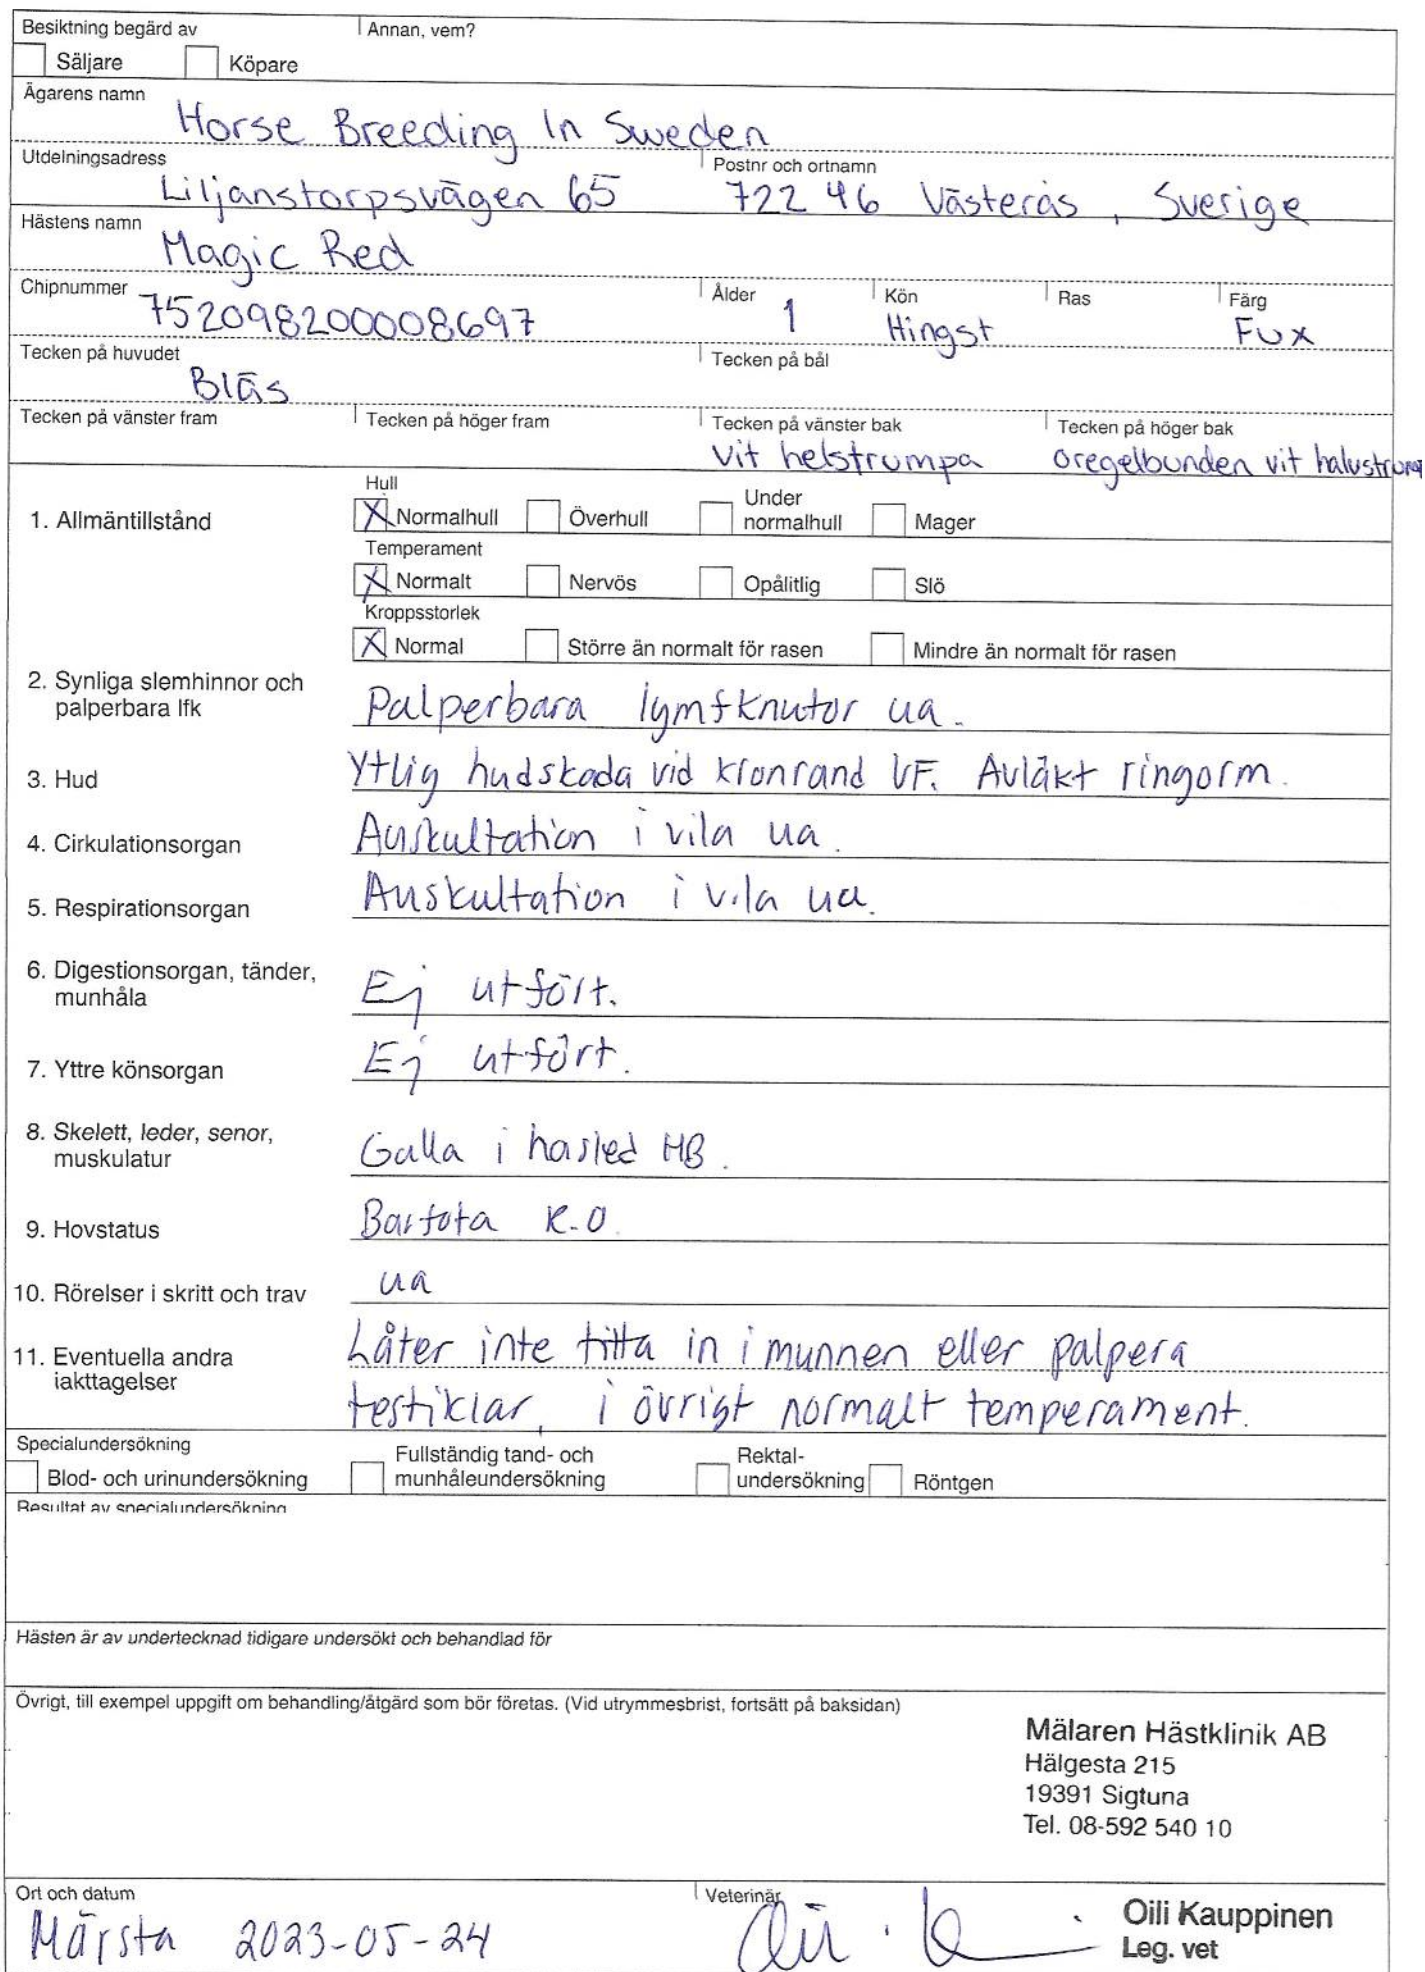 Besiktning begärd av Annan, vem?
Säljare Köpare
Ägarens namn
Horse Breeding In Sweden
Utdelningsadress Postnr och ortnamn
Liljanstorpsvägen 65 722 46 Västerås, Sverige
Hästens namn
Magic Red
Chipnummer Ålder Kön Ras Färg
752098200008697 1 Hingst Fux
Tecken på huvudet Tecken på bål
Bläs
Tecken på vänster fram Tecken på höger fram Tecken på vänster bak Tecken på höger bak
vit helstrumpa oregelbunden vit
Hull
1. Allmäntillstånd X Normalhull Överhull Under normalhull Mager
Temperament
X Normalt Nervös Opålitlig Slö
Kroppsstorlek
X Normal Större än normalt för rasen Mindre än normalt för rasen
2. Synliga slemhinnor och
palperbara lfk Palperbara lymfknutor ua.
3. Hud Ytlig hudskada vid kronrand VF. Avläkt ringorm.
4. Cirkulationsorgan Auskultation i vila ua.
5. Respirationsorgan Auskultation i vila ua.
6. Digestionsorgan, tänder,
munhåla Ej utfört.
7. Yttre könsorgan Ej utfört.
8. Skelett, leder, senor,
muskulatur Galla i hasled HB.
9. Hovstatus Barfota R.O.
10. Rörelser i skritt och trav ua
11. Eventuella andra
iakttagelser Låter inte titta in i munnen eller palpera
testiklar, i övrigt normalt temperament.
Specialundersökning
Blod- och urinundersökning Fullständig tand- och munhåleundersökning Rektal-undersökning Röntgen
Resultat av specialundersökning
Hästen är av undertecknad tidigare undersökt och behandlad för
Övrigt, till exempel uppgift om behandling/åtgärd som bör företas. (Vid utrymmesbrist, fortsätt på baksidan)
Mälaren Hästklinik AB
Hälgesta 215
19391 Sigtuna
Tel. 08-592 540 10
Ort och datum Veterinär
Märsta 2023-05-24 Oili Kauppinen
Leg. vet